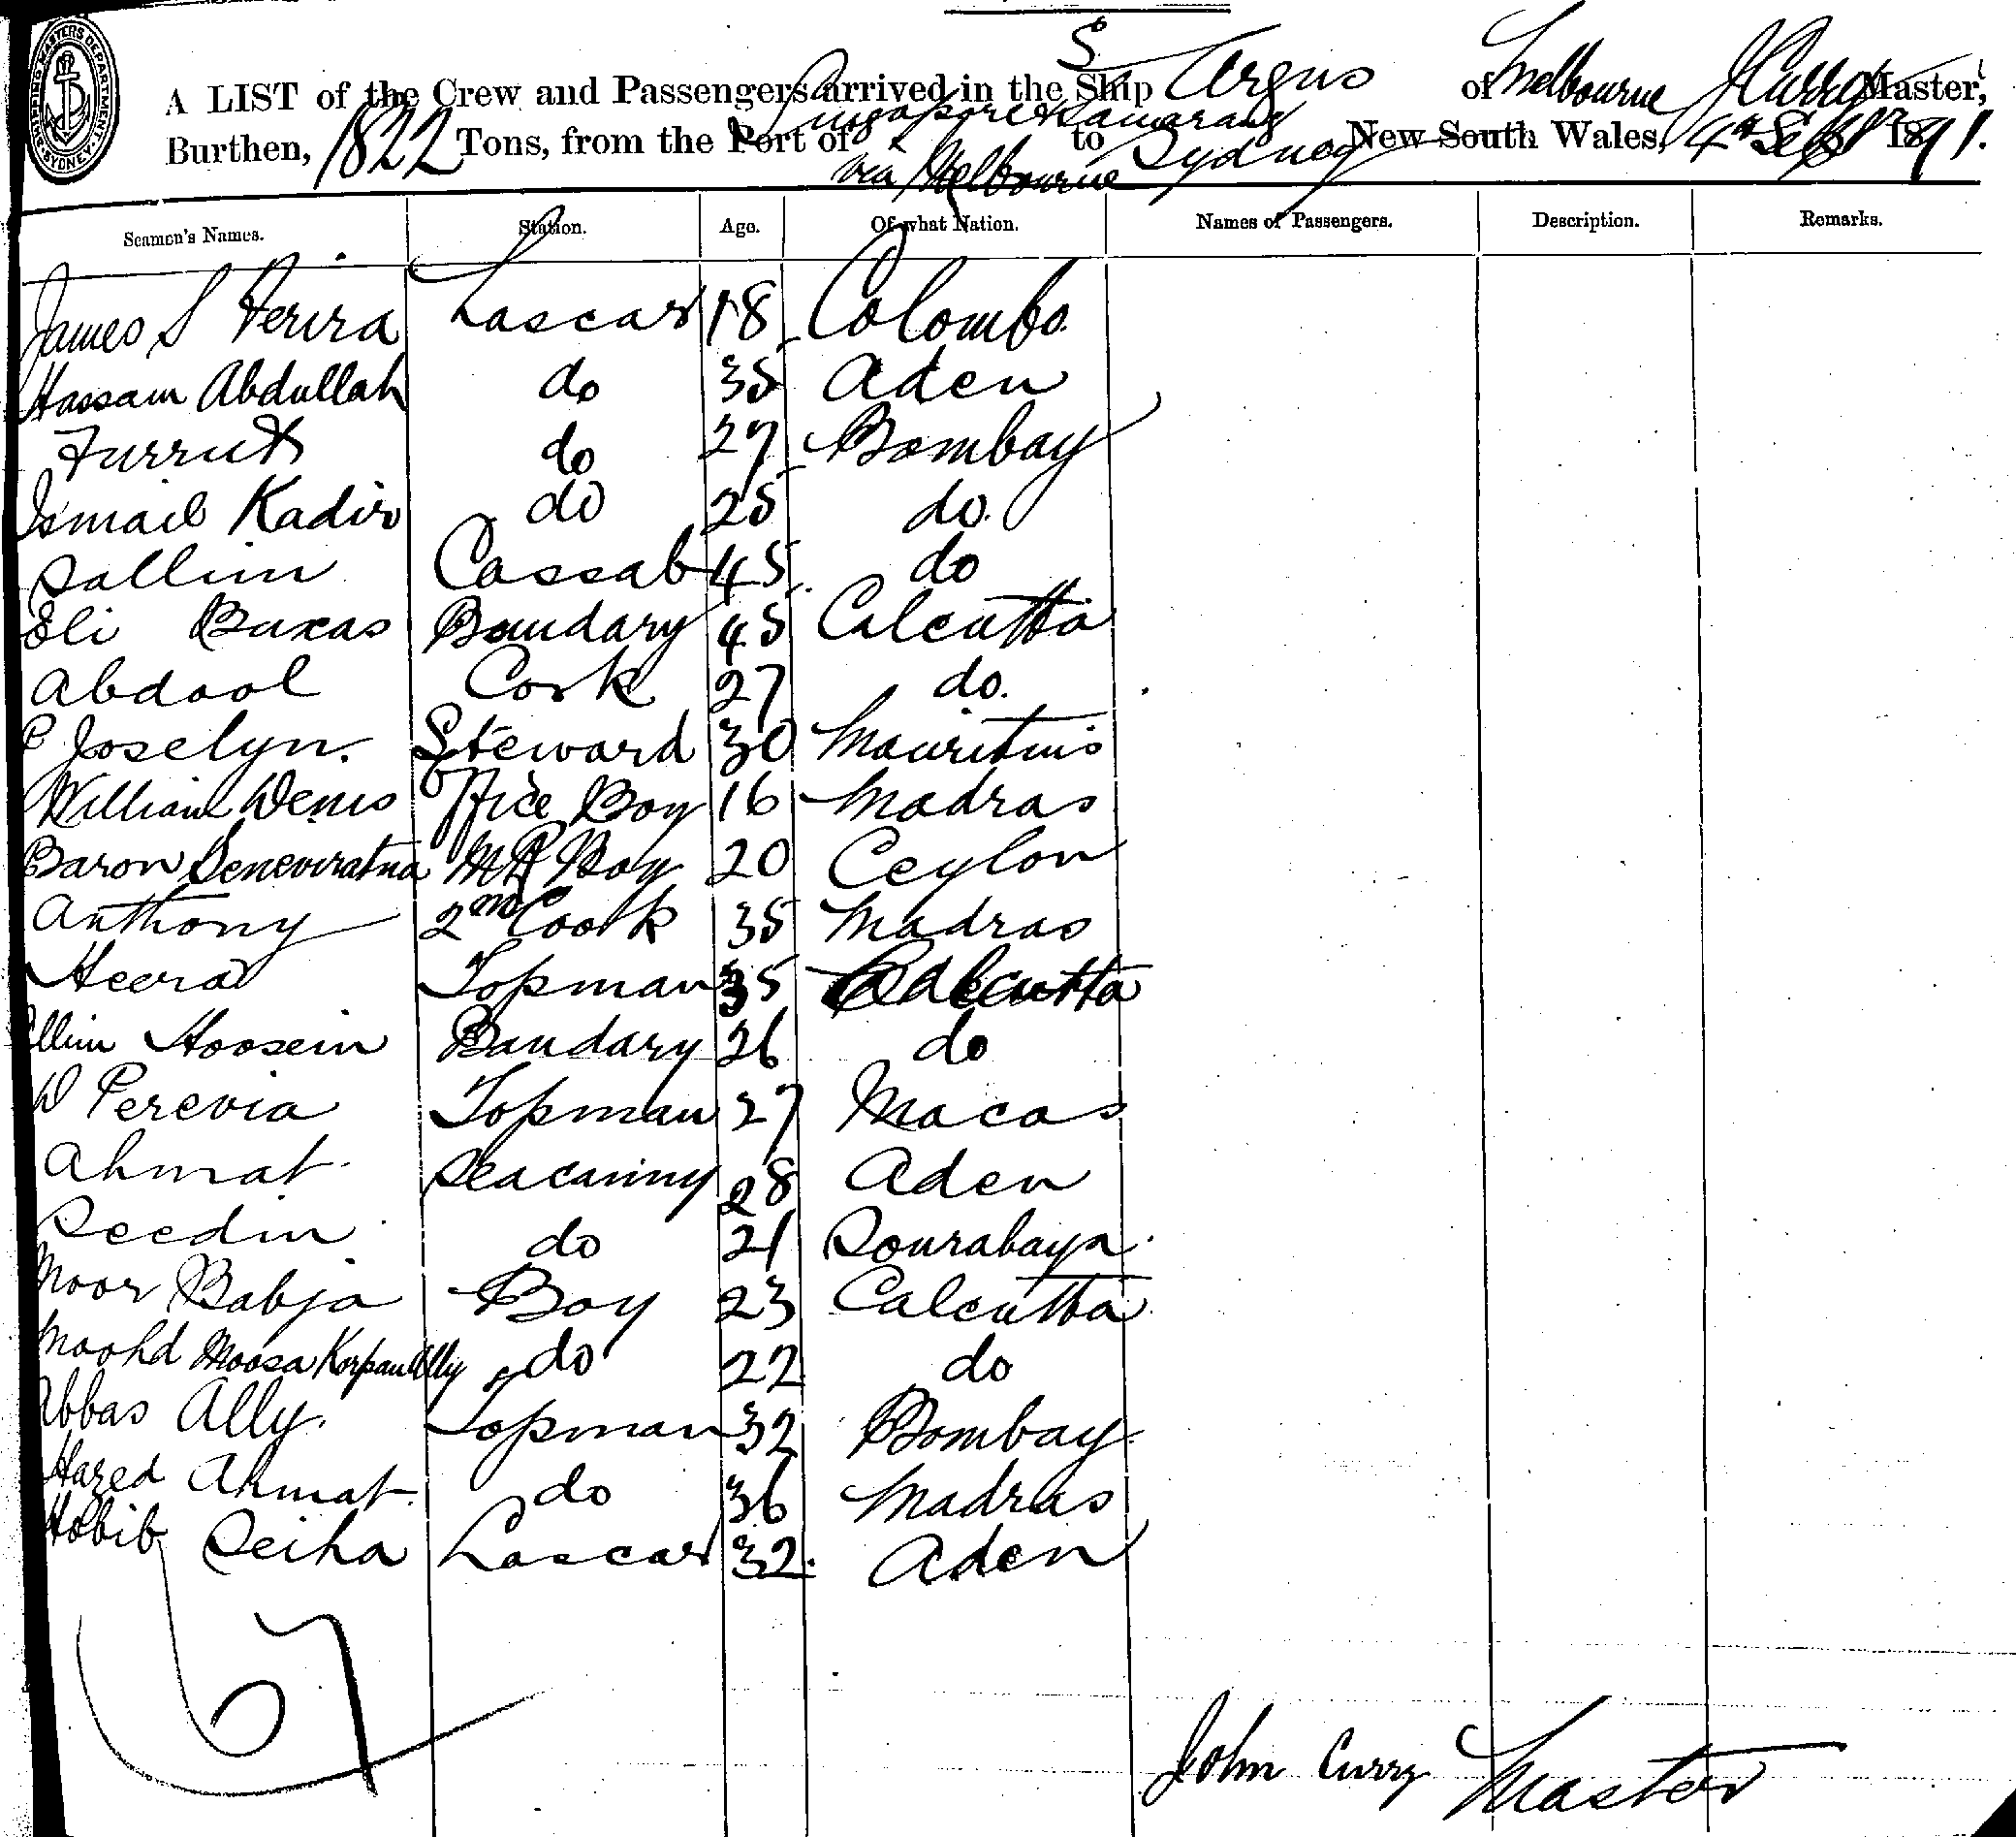 SHIPPING MASTERS DEPARTMENT SYDNEY
A LIST of the Crew and Passengers arrived in the Ship S. Argus of Melbourne J Curry Master,
Burthen, 1822 Tons, from the Port of Singapore & Samarang via Melbourne to Sydney New South Wales, 4th Sept 1891.
Seamen's Names. Station. Age. Of what Nation. Names of Passengers. Description. Remarks.
James S Perira Lascar 18 Colombo
Hassam Abdullah do 35 Aden
Furruck do 27 Bombay
Ismail Kadir do 25 do.
Sallim Cassab 45 do
Eli Buxas Bandary 45 Calcutta
Abdool Cook 27 do.
P Joselyn. Steward 30 Mauritius
William Denis Office Boy 16 Madras
Baron Seneviratna MR Boy 20 Ceylon
Anthony 2nd Cook 35 Madras
Heera Topman 35 Calcutta
Hoosein Bandary 26 do
D Perevia Topman 27 Macao
Ahmat. Seacunny 28 Aden
Seedin do 21 Sourabaya.
Noor Babja Boy 23 Calcutta
Moohd Moosa do 22 do
Abbas Ally. Topman 32 Bombay
Hazed Ahmat. do 36 Madras
Hobib Seiha Lascar 32. Aden
67
John Curry Master